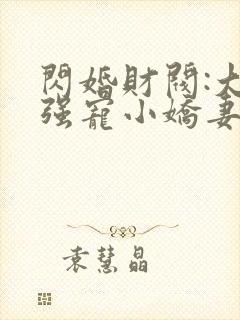 閃婚財閥:大
強寵小嬌妻
袁慧晶